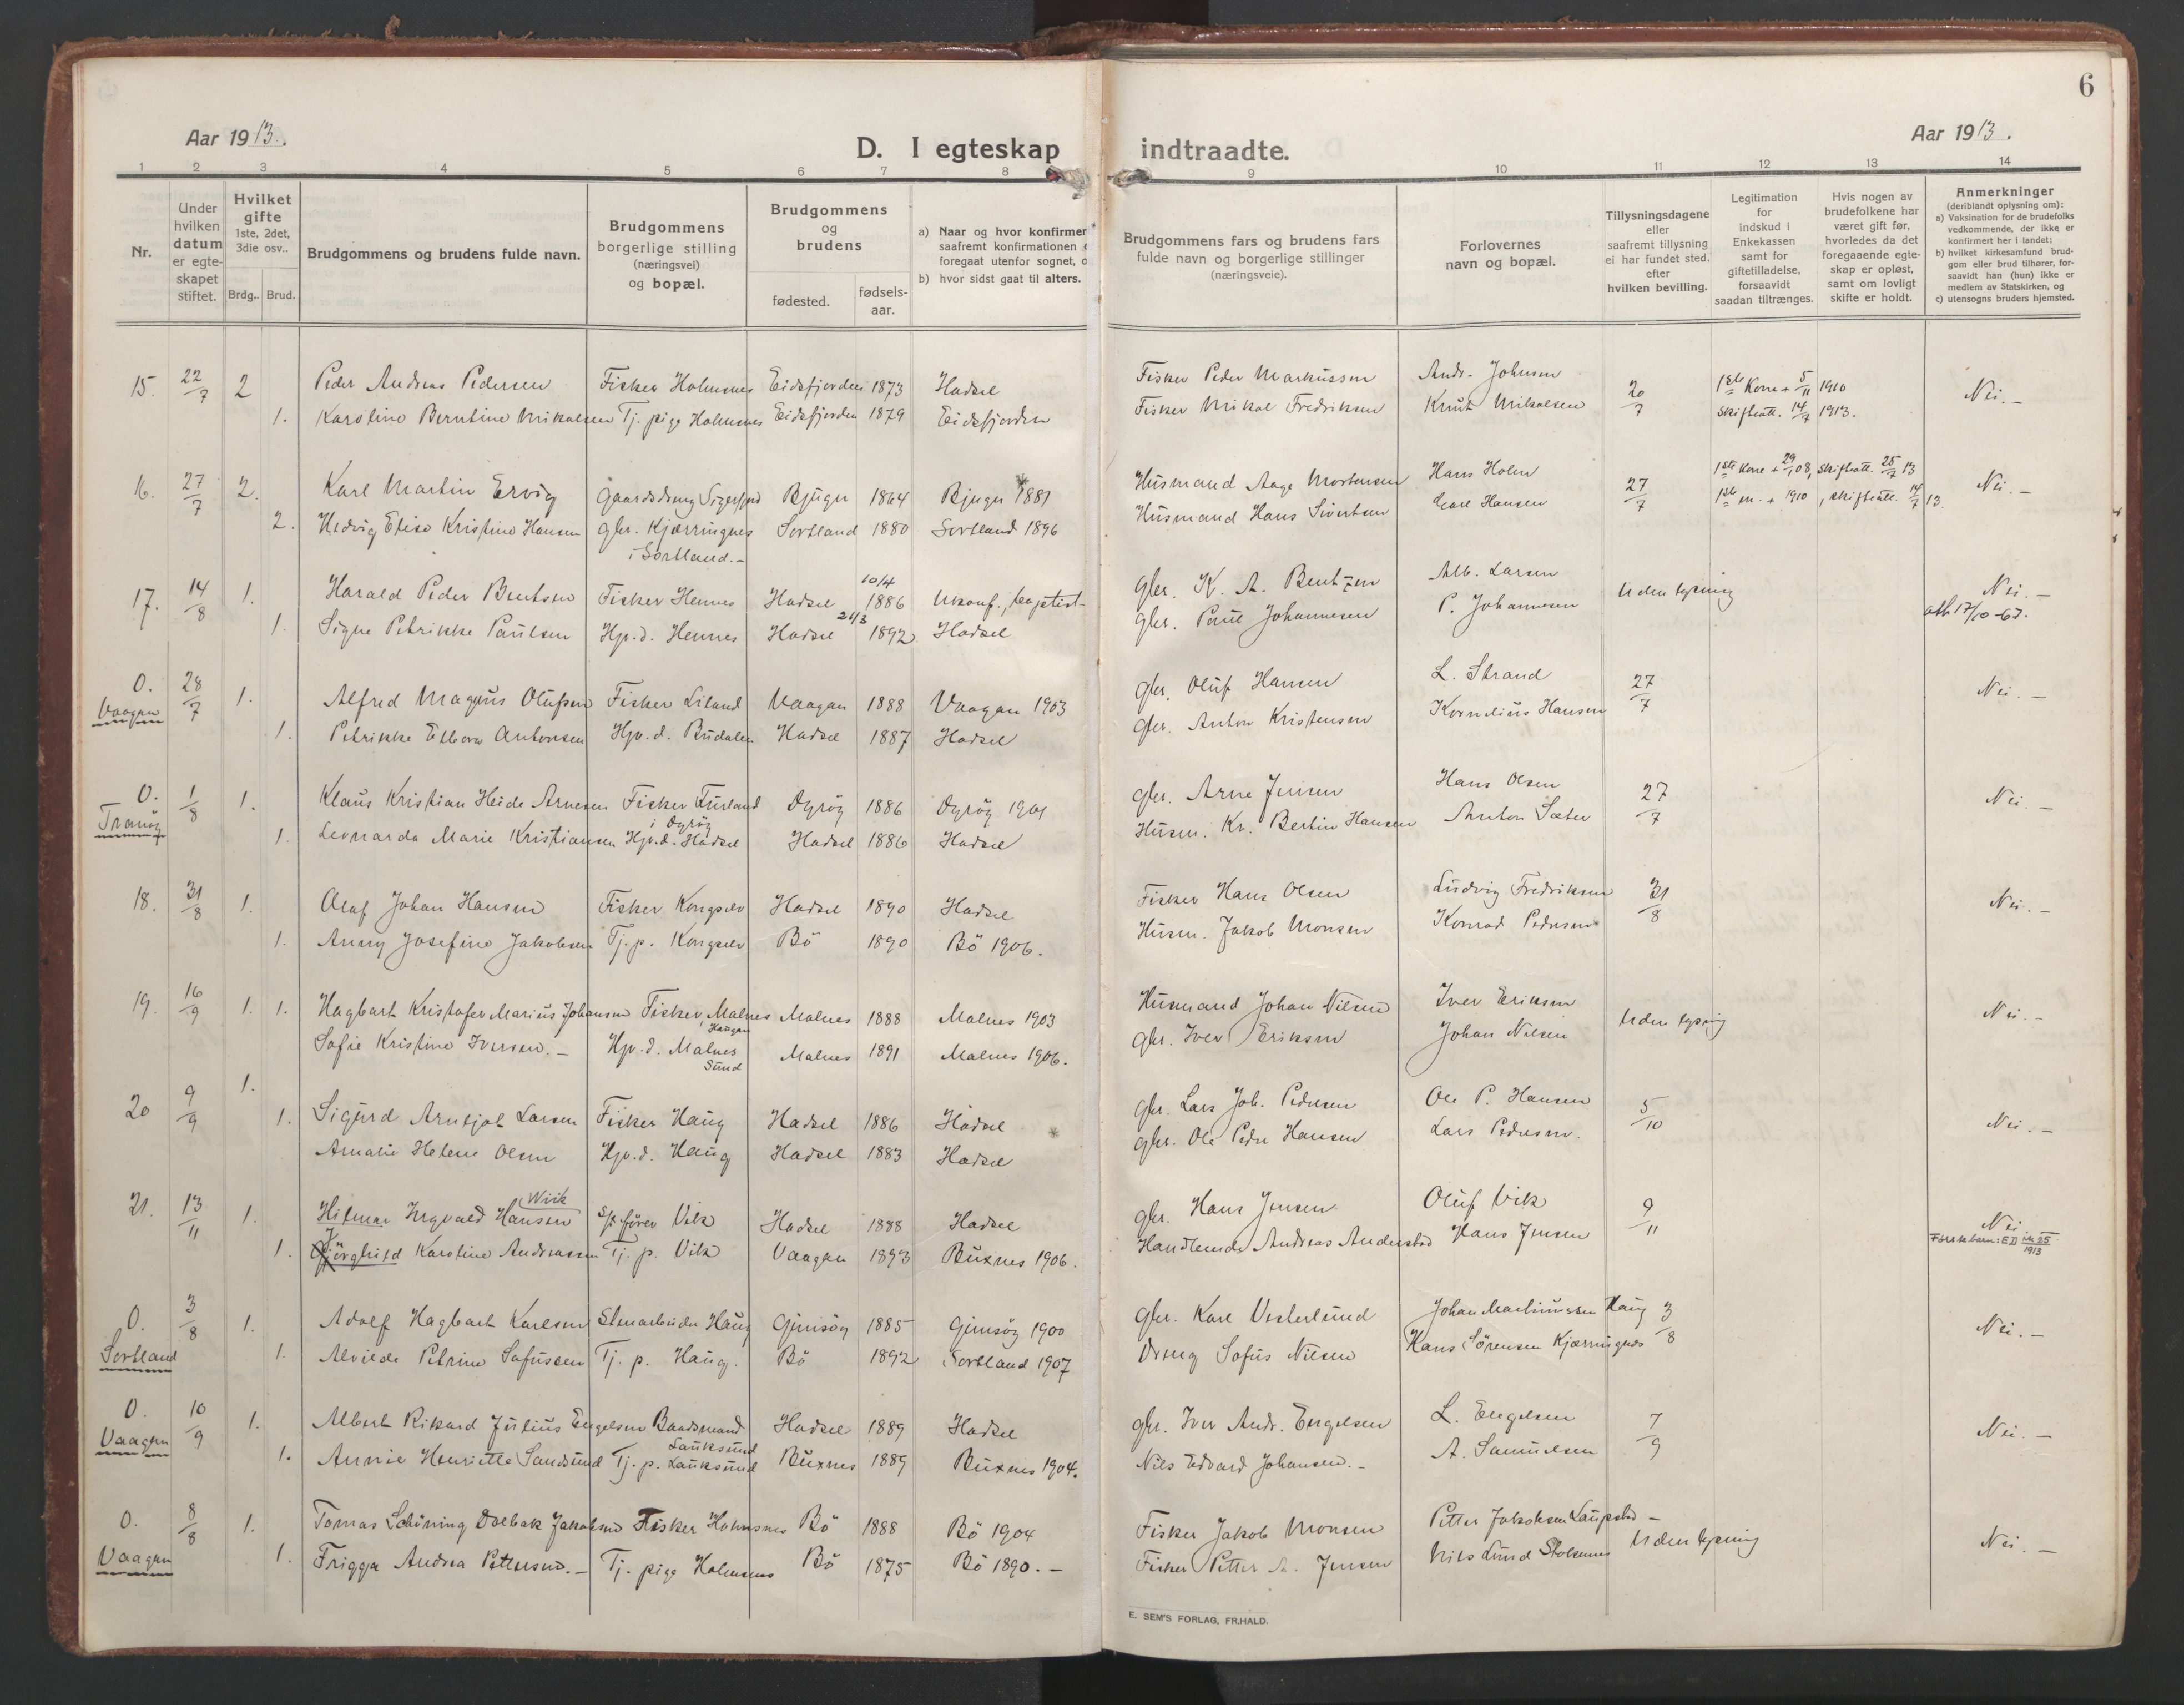 6
Aar 1913.
D. I egteskap indtraadte.
Aar 1913.
1 2 3 4 5 6 7 8 9 10 11 12 13 14
Nr.
Under hvilken datum er egteskapet stiftet.
Hvilket gifte 1ste, 2det, 3die osv..
Brdg.. Brud.
Brudgommens og brudens fulde navn.
Brudgommens borgerlige stilling (næringsvei) og bopæl.
Brudgommens og brudens
fødested. fødsels-aar.
a) Naar og hvor konfirmer
saafremt konfirmationen
foregaat utenfor sognet, o
b) hvor sidst gaat til alters.
Brudgommens fars og brudens fars fulde navn og borgerlige stillinger (næringsveie).
Forlovernes navn og bopæl.
Tillysningsdagene eller saafremt tillysning ei har fundet sted, efter hvilken bevilling.
Legitimation for indskud i Enkekassen samt for giftetilladelse, forsaavidt saadan tiltrænges.
Hvis nogen av brudefolkene har været gift før, hvorledes da det foregaaende egteskap er opløst, samt om lovligt skifte er holdt.
Anmerkninger (deriblandt oplysning om):
a) Vaksination for de brudefolks vedkommende, der ikke er konfirmert her i landet;
b) hvilket kirkesamfund brudgom eller brud tilhører, forsaavidt han (hun) ikke er medlem av Statskirken, og
c) utensogns bruders hjemsted.
15. 22/7 2 Peder Andreas Pedersen Fisker Holmsnes Eidsfjorden 1873 Hadsel Fisker Peder Markussen Andr. Johnsen 20/7 1ste Kone + 5/11 1910 Nei. —
1. Karoline Berntine Mikalsen Tj. pige Holmsnes Eidsfjorden 1879 Eidsfjorden Fisker Mikal Fredriksen Knut Mikalsen skifteatt. 14/7 1913.
16. 27/7 2. Karl Martin Ervig Gaardsdreng Sigerfjord Bjugn 1864 Bjugn 1881 Husmand Aage Mortensen Hans Holm 27/7 1ste Kone + 29/1 08, skifteatt. 25/7 13 Nei. —
2. Hedvig Elise Kristine Hansen gbr. Kjærringnes i Sortland. - Sortland 1880 Sortland 1896 Husmand Hans Sivertsen Carl Hansen 1ste m. + 1910, skifteatt. 14/7 13.
17. 14/8 1. Harald Peder Bentsen Fisker Hennes Hadsel 10/4 1886 Ukonf., baptist- gbr. K. A. Bentzen Alb. Larsen Uden lysning Nei. —
1. Signe Petrikke Paulsen Hp. d. Hennes Hadsel 21/3 1892 Hadsel gbr. Paul Johannesen P. Johannesen att 17/10-67.
O. Vaagan 28/7 1. Alfred Magnus Olufsen Fisker Liland Vaagan 1888 Vaagan 1903 gbr. Oluf Hansen L. Strand 27/7 Nei. —
1. Petrikke Elbora Antonsen Hp. d. Budalen Hadsel 1887 Hadsel gbr. Anton Kristensen Kornelius Hansen
O. Tranøy 1/8 1. Klaus Kristian Heide Arnesen Fisker Furland i Dyrøy Dyrøy 1886 Dyrøy 1901 gbr. Arne Jensen Hans Olsen 27/7 Nei. —
1. Leonarda Marie Kristiansen Hp. d. Hadsel Hadsel 1886 Hadsel Husm. Kr. Bertin Hansen Anton Sæter
18. 31/8 1. Olaf Johan Hansen Fisker Kongselv Hadsel 1890 Hadsel Fisker Hans Olsen Ludvig Fredriksen 31/8 Nei. —
1. Anny Josefine Jakobsen Tj. p. Kongselv Bö 1890 Bö 1906. Husm. Jakob Monsen Konrad Pedersen
19. 16/9 1. 1. Hagbart Kristofer Marius Johansen Fisker, Malnes Haugan Malnes 1888 Malnes 1903 Husmand Johan Nilsen Iver Eriksen Uden lysning Nei. —
Sofie Kristine Iversen. — Hp. d. Malnes Sund Malnes 1891 Malnes 1906. gbr. Iver Eriksen Johan Nilsen
20 9/9 1. 1. Sigurd Arntjot Larsen Fisker Haug Hadsel 1886 Hadsel gbr. Lars Joh. Pedersen Ole P. Hansen 5/10 Nei. —
Amalie Helene Olsen Hp. d. Haug Hadsel 1883 Hadsel gbr. Ole Peder Hansen Lars Pedersen.
21. 13/11 1. Hilmar Ingvald Hansen Wiik Vik Hadsel 1888 Hadsel gbr. Hans Jensen Oluf Vik 9/11 Nei
1. Jörghild Karoline Andreassen Tj. p. Vik Vaagan 1893 Buxnes 1906. Handlende Andreas Hans Jensen 1913
O. Sortland 3/8 1. Adolf Hagbart Karlsen Stenarbeider Haug Gimsöy 1885 Gimsöy 1900 gbr. Karl Vesterlund Johan Martinussen Haug 3/8 Nei. —
1. Alvilde Petrine Sofussen Tj. p. Haug. Bö 1892 Sortland 1907 Dreng Sofus Nilsen Hans Sörensen Kjærringnes
O. Vaagan 10/9 1. Albert Rikard Julius Engelsen Baadsmand Lauksund Hadsel 1889 Hadsel gbr. Iver Andr. Engelsen L. Engelsen 7/9 Nei. —
1. Annie Henriette Sandsund Tj. p. Lauksund Buxnes 1889 Buxnes 1904. Nils Edvard Johansen. — A. Samuelsen
O. Vaagan 8/8 1. Tomas Schöning Dolbak Jakobsen Fisker Holmsnes Bö 1888 Bö 1904 Fisker Jakob Monsen Petter Jakobsen Laupstad — Uden lysning Nei. —
1. Frigga Andrea Pettersen. — Tj. pige Holmsnes Bö 1875 Bö 1890. — Fisker Petter A. Jensen Nils Lund
E. SEM'S FORLAG, FR.HALD.